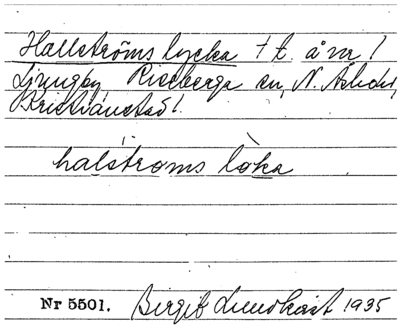 Hallströms lycka † t. å nr 1
Ljungby, Riseberga sn, N. Åsbohd,
Kristianstad l.
halstroms lòka
Nr 5501. Birgit Lundkvist 1935